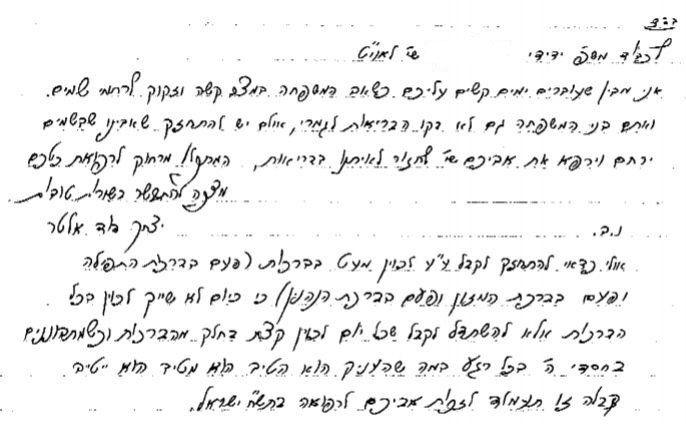 בס"ד
לכבוד משפ' ידידי שי' לאוי"ט
אני מבין שעוברים ימים קשים עליכם כשאב המשפחה במצב קשה וזקוק לרחמי שמים.
ואתם בני המשפחה גם לא בקו הבריאות לגמרי, אולם יש להתחזק שאבינו שבשמים
ירחם וירפא את אביכם שי' לחזור לאיתנו בבריאות, המתפלל מרחוק לרפואת כולכם
מצפה להתבשר בשורות טובות
יצחק דוד אלטר
נ.ב.
אולי כדאי להתחזק לקבל ע"ע לכוין מעט בברכות (פעם בברכת התפילה
ופעם בברכת המזון ופעם בברכת הנהנין) כי כיום לא שייך לכוין בכל
הברכות אלא להשתדל לקבל שכל יום לכוין קצת בחלק מהברכות וכשמתבוננים
בחסדי ה' בכל רגע במה שהעניק הוא הטיב הוא מטיב הוא ייטיב
קבלה זו תעמוד לזכות אביכם לרפואה בתשח"י ישראל.